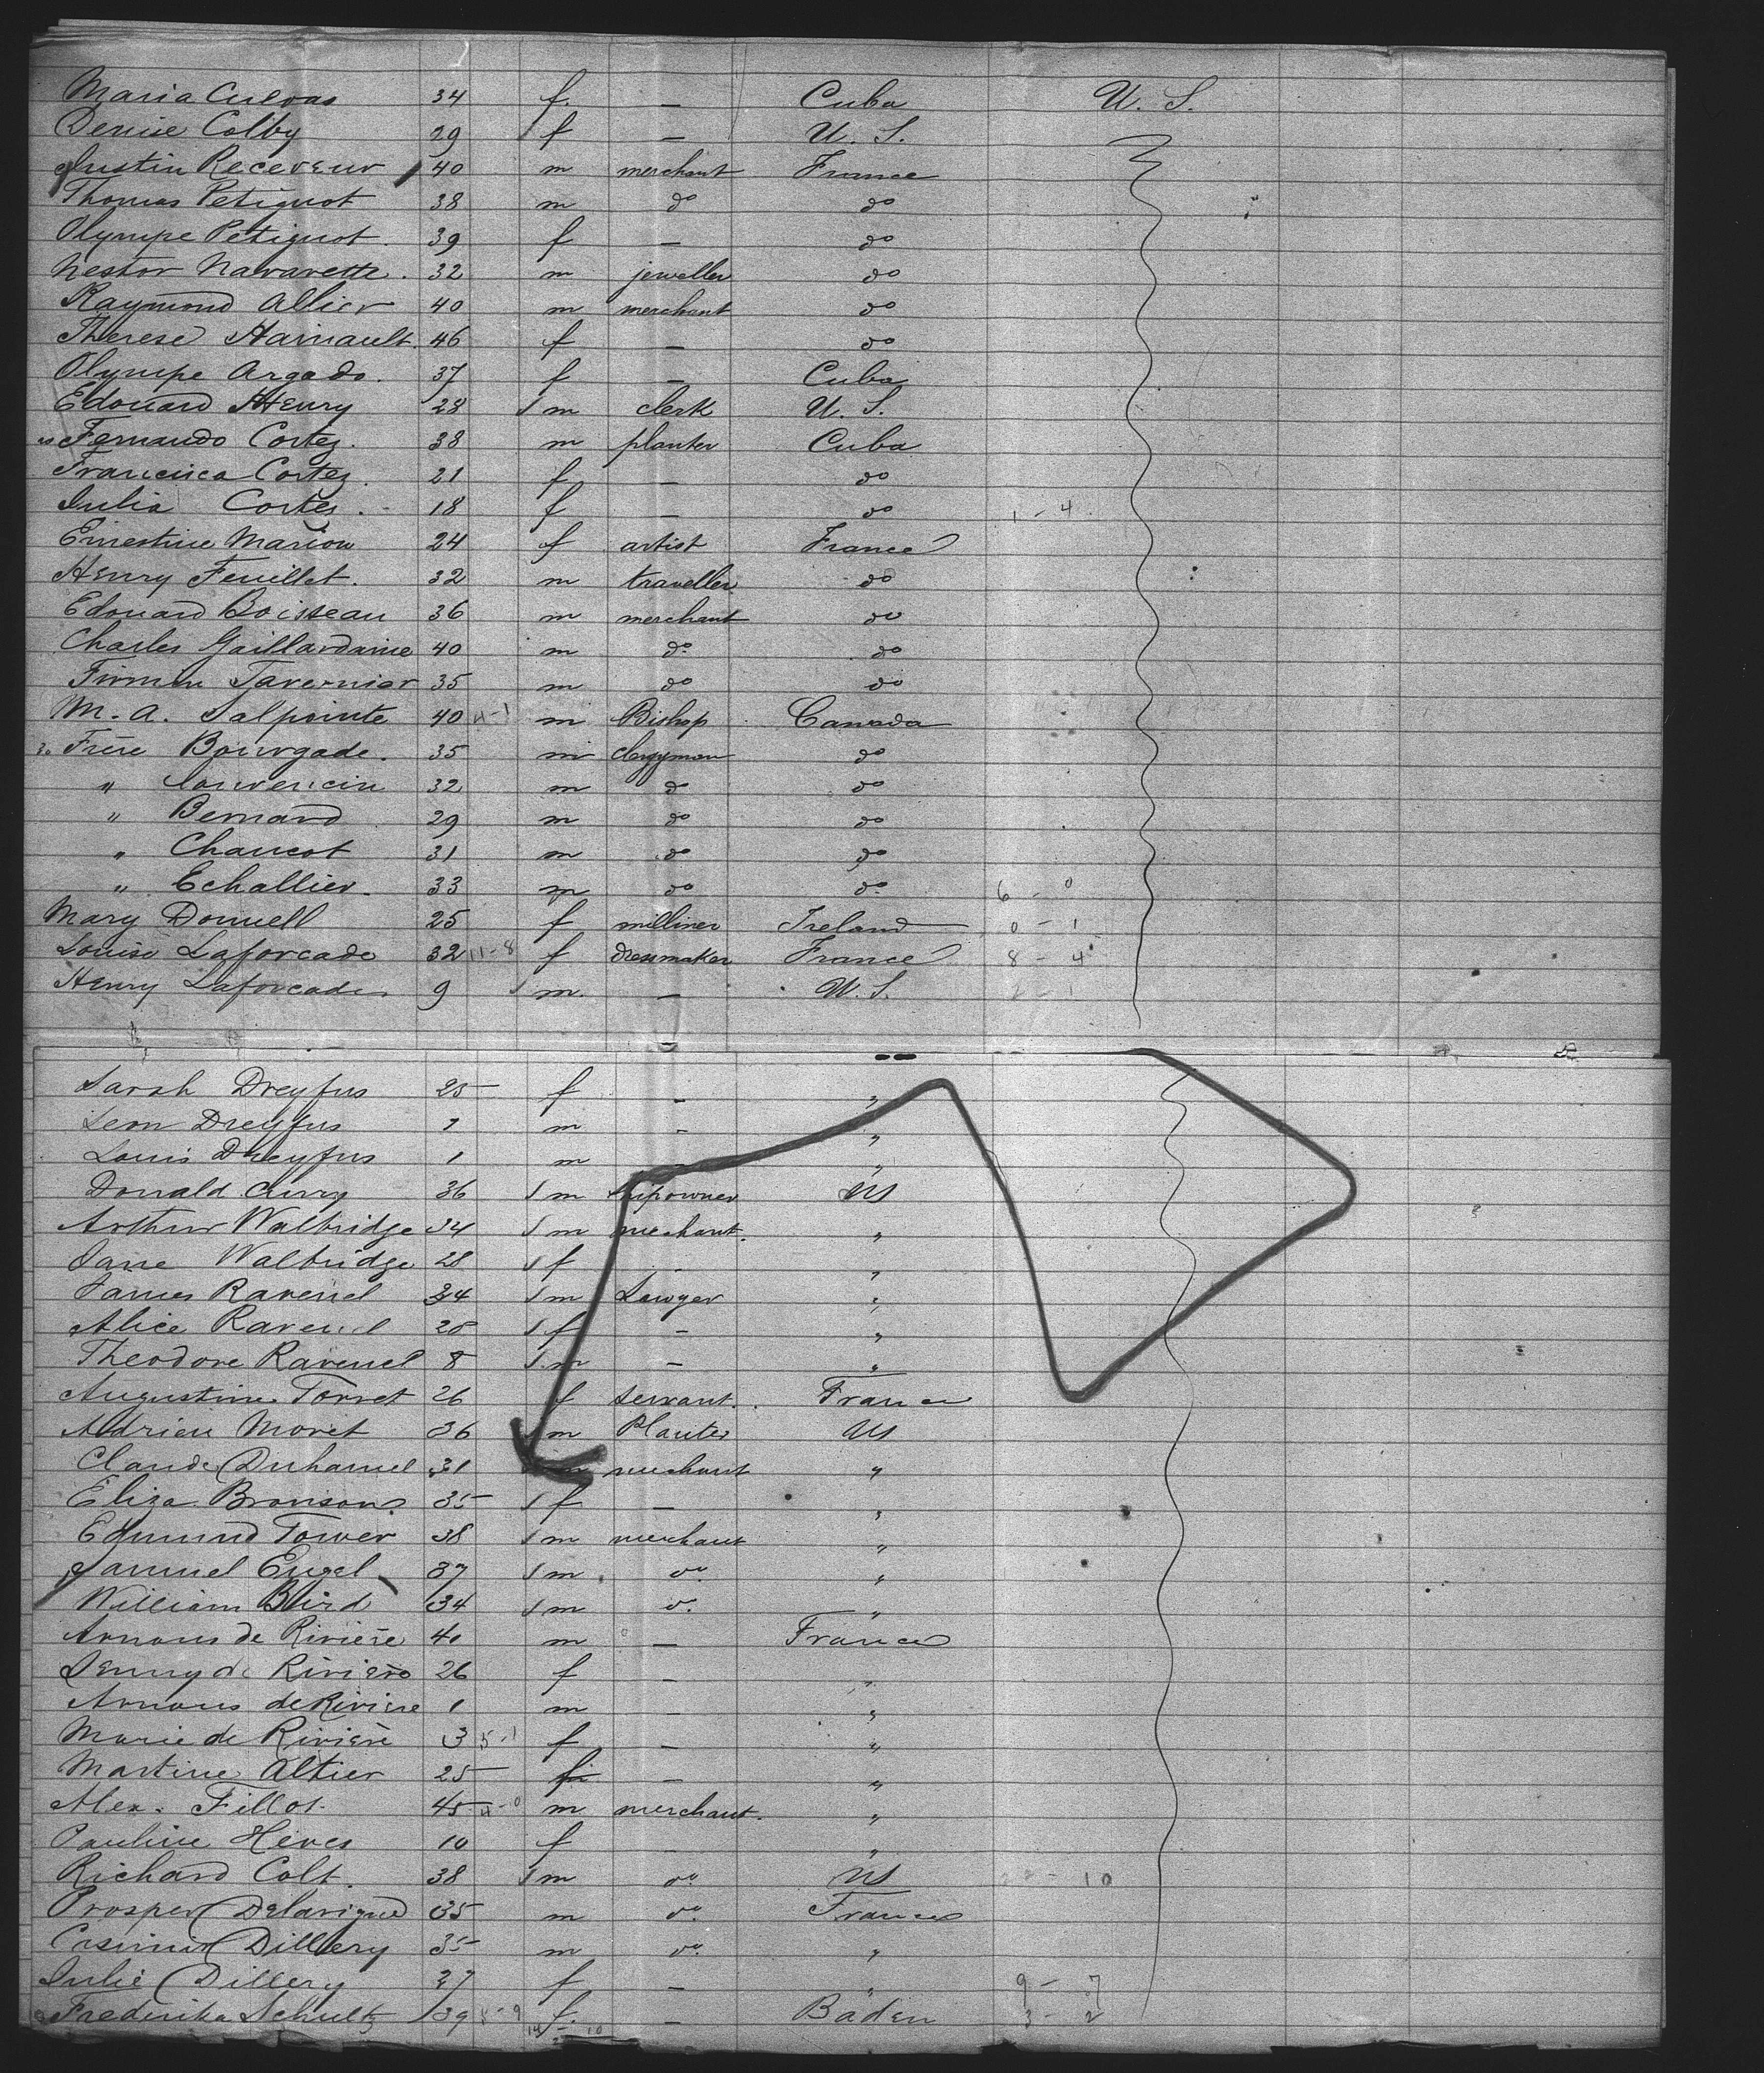 Maria Cuevas 34 f. — Cuba U. S.
Denise Colby 29 f — U. S.
Justin Receveur 40 m merchant France
Thomas Petignot 38 m do do
Olympe Petignot. 39 f — do
Nestor Navarette. 32 m jeweller do
Raymond Allier 40 m merchant do
Therese Hainault. 46 f — do
Olympe Argado. 37 f — Cuba
Edouard Henry 28 m clerk U. S.
Fernando Cortez. 38 m planter Cuba
Francisca Cortez. 21 f — do
Julia Cortes. 18 f — do 1 - 4
Ernestine Marion 24 f artist France
Henry Feuillet. 32 m traveller do
Edouard Boisseau 36 m merchant do
Charles Gaillardanie 40 m do do
Firmin Tavernier 35 m do do
M. A. Salpointe 40 4-1 m Bishop Canada
30 Frère Bourgade. 35 m clergyman do
" 32 m do do
" Bernard 29 m do do
" Chaucot 31 m do do
" Echallier. 33 m do do 6 - 0
Mary Donnell 25 f milliner Ireland 0 - 1
Louise Laforcade 32 11-8 f dressmaker France 8 - 4
Henry Laforcade 9 m. — U. S.
Sarah Dreyfus 25 f - "
Leon Dreyfus 1 m - "
Louis Dreyfus 1 m "
Donald Curry 36 m shipowner US
Arthur Walbridge 34 m merchant. "
Jane Walbridge 28 f - "
James Ravenel 34 m Lawyer "
Alice Ravenel 28 f - "
Theodore Ravenel 8 m - "
Augustine Torret 26 f servant. France
Adrien Moret 36 m Planter US
Claude Duhamel 31 m merchant "
Eliza Bronson 35 f — "
Edmund Tower 38 m merchant "
Samuel Engel 37 m do "
William Bird 34 m do "
Arnous de Riviere 40 m — France
Jenny de Riviere 26 f - "
Arnous de Riviere 1 m - "
Marie de Riviere 3 5-1 f - "
Martine Altier 25 f - "
Alex. Fillot 45 4-0 m merchant. "
Pauline Heves 10 f - "
Richard Colt. 38 m do US 10
Prosper Delavigne 35 m do France
Casimir Dillery 35 m do "
Julie Dillery 27 f - " 9 - 7
Frederika Schultz 39 5-9 f. — Baden 3 - 2